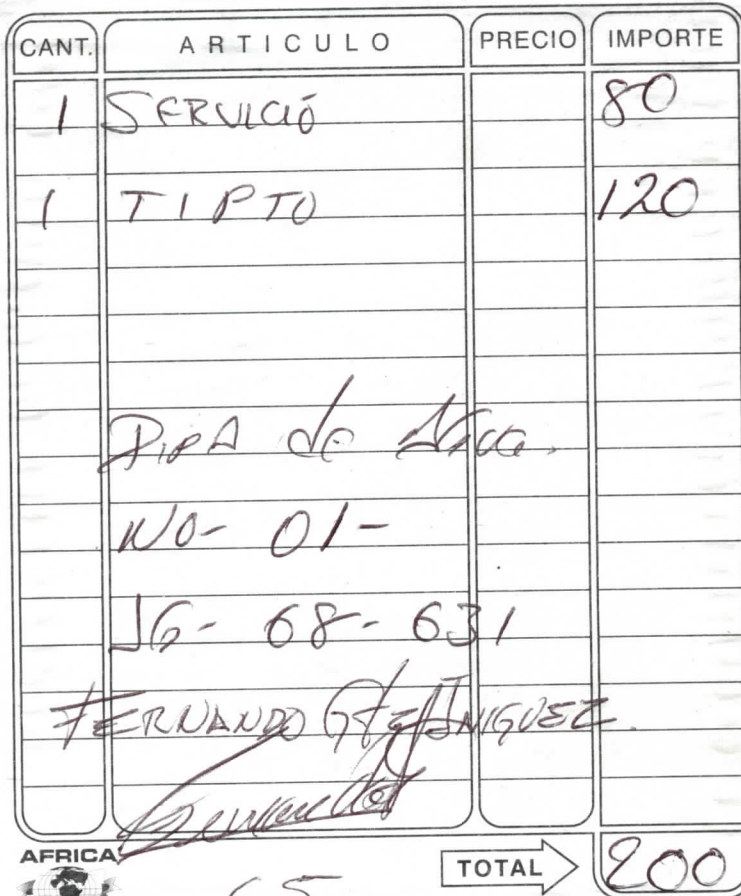 CANT. ARTICULO PRECIO IMPORTE
1 SERVICIÓ 80
1 TIPTO 120
PipA de
NO- 01-
JG- 68- 631
FERNANDO Gtz IÑIGUEZ.
AFRICA
TOTAL 200